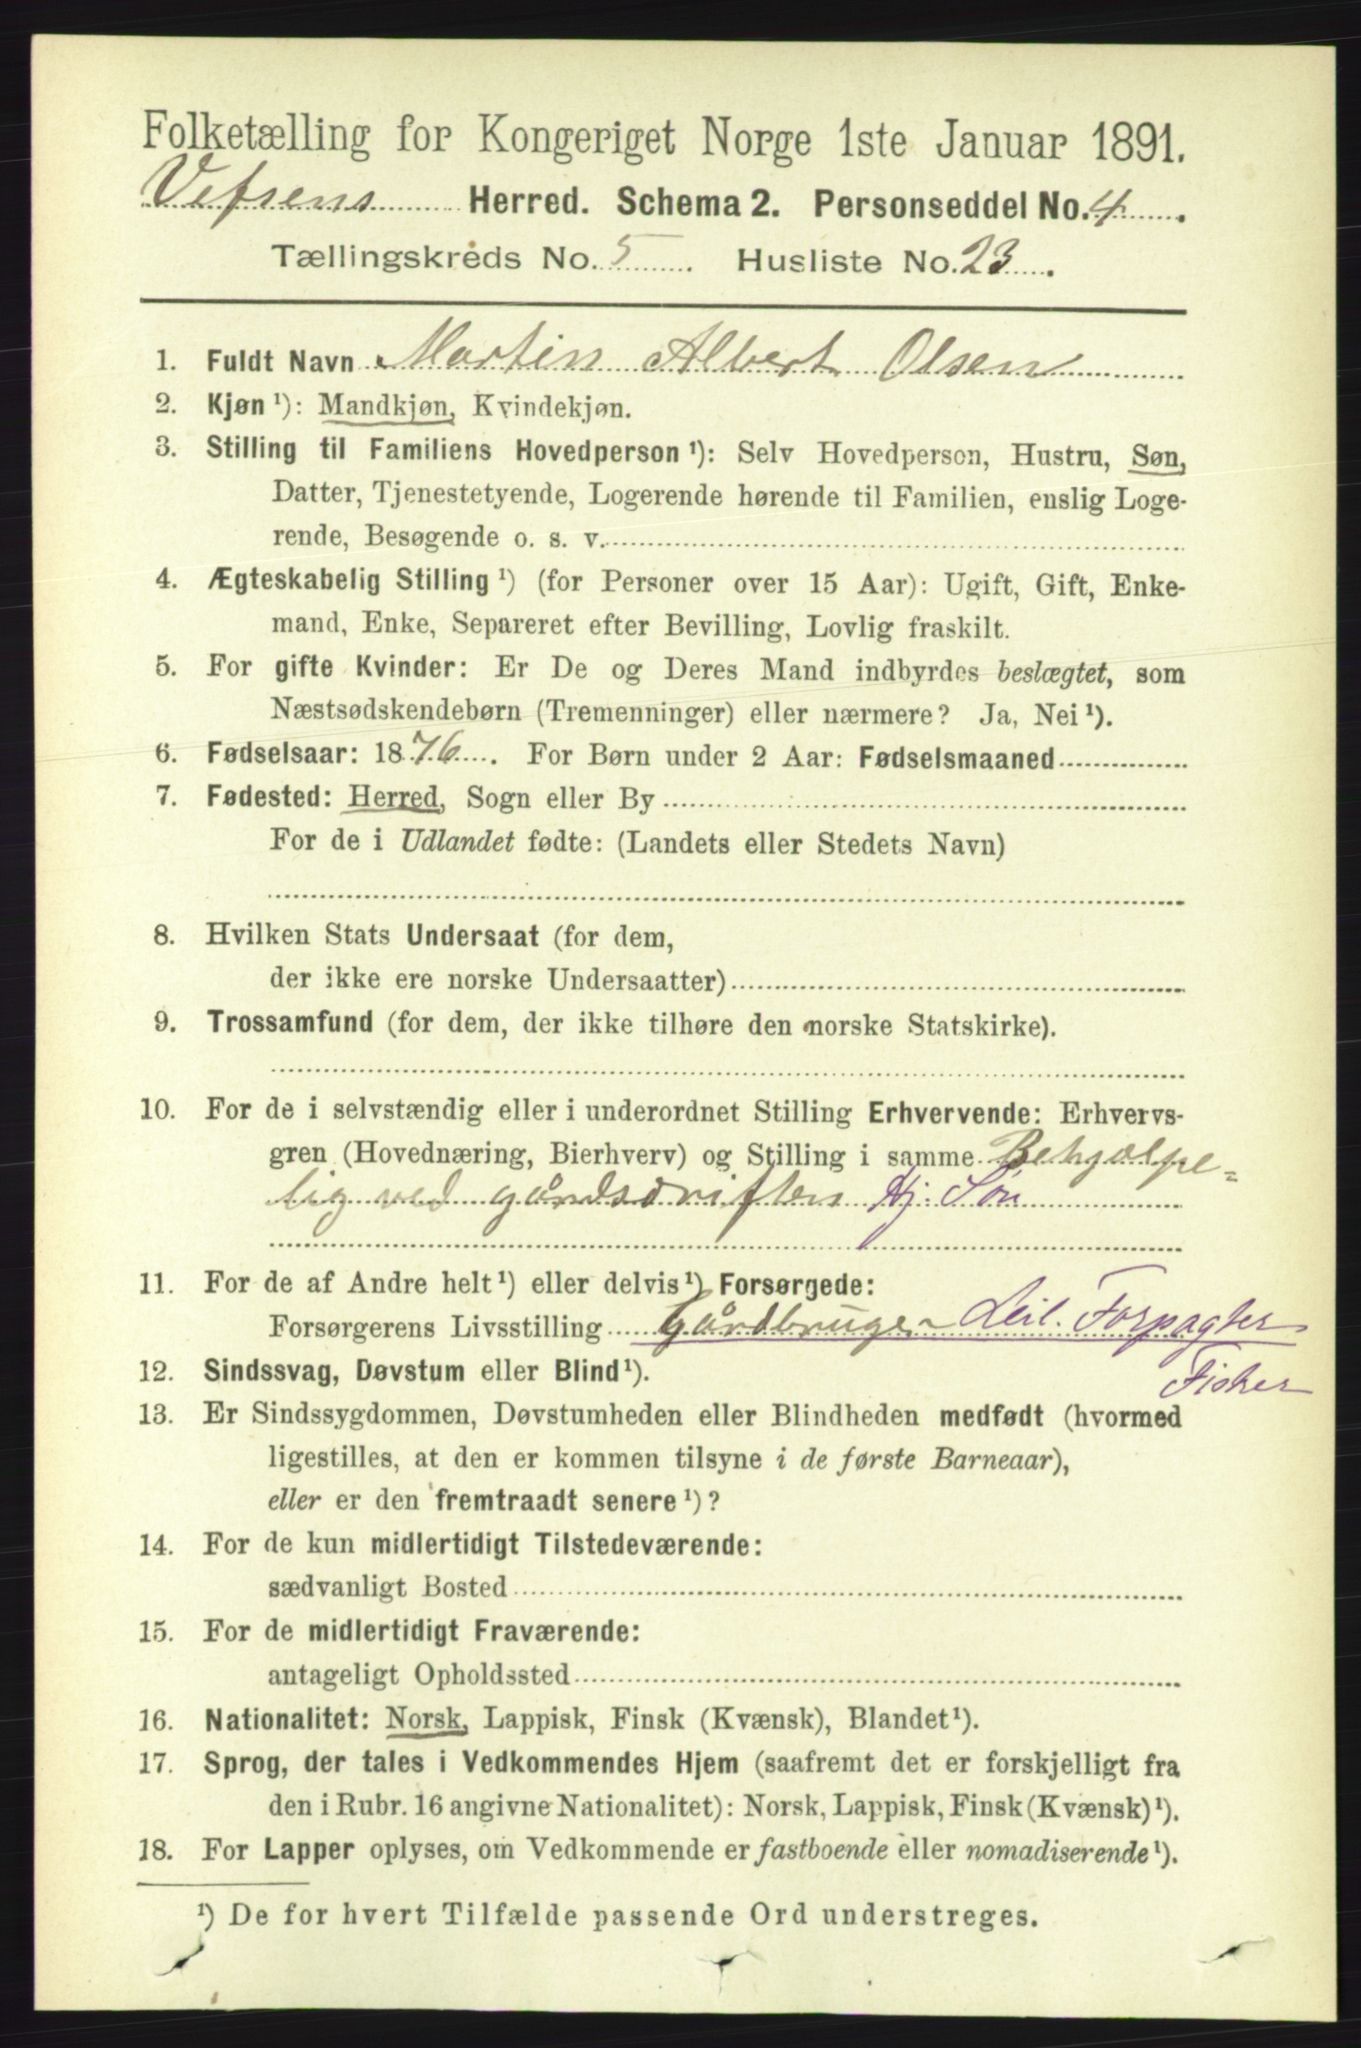 Folketælling for Kongeriget Norge 1ste Januar 1891.
Vefsens Herred. Schema 2. Personseddel No. 4.
Tællingskreds No. 5. Husliste No. 23.
1. Fuldt Navn Martin Albert Olsen
2. Kjøn ¹): Mandkjøn, Kvindekjøn.
3. Stilling til Familiens Hovedperson ¹): Selv Hovedperson, Hustru, Søn,
Datter, Tjenestetyende, Logerende hørende til Familien, enslig Loge-
rende, Besøgende o. s. v.
4. Ægteskabelig Stilling ¹) (for Personer over 15 Aar): Ugift, Gift, Enke-
mand, Enke, Separeret efter Bevilling, Lovlig fraskilt.
5. For gifte Kvinder: Er De og Deres Mand indbyrdes beslægtet, som
Næstsødskendebørn (Tremenninger) eller nærmere? Ja, Nei ¹).
6. Fødselsaar: 1876. For Børn under 2 Aar: Fødselsmaaned
7. Fødested: Herred, Sogn eller By
For de i Udlandet fødte: (Landets eller Stedets Navn)
8. Hvilken Stats Undersaat (for dem,
der ikke ere norske Undersaatter)
9. Trossamfund (for dem, der ikke tilhøre den norske Statskirke).
10. For de i selvstændig eller i underordnet Stilling Erhvervende: Erhvervs-
gren (Hovednæring, Bierhverv) og Stilling i samme Behjælpe-
lig ved gårdsdriften Hj. Søn
11. For de af Andre helt ¹) eller delvis ¹) Forsørgede:
Forsørgerens Livsstilling Gårdbruger Leil. Forpagter
Fisker
12. Sindssvag, Døvstum eller Blind ¹).
13. Er Sindssygdommen, Døvstumheden eller Blindheden medfødt (hvormed
ligestilles, at den er kommen tilsyne i de første Barneaar),
eller er den fremtraadt senere ¹)?
14. For de kun midlertidigt Tilstedeværende:
sædvanligt Bosted
15. For de midlertidigt Fraværende:
antageligt Opholdssted
16. Nationalitet: Norsk, Lappisk, Finsk (Kvænsk), Blandet ¹).
17. Sprog, der tales i Vedkommendes Hjem (saafremt det er forskjelligt fra
den i Rubr. 16 angivne Nationalitet): Norsk, Lappisk, Finsk (Kvænsk) ¹).
18. For Lapper oplyses, om Vedkommende er fastboende eller nomadiserende ¹).
¹) De for hvert Tilfælde passende Ord understreges.